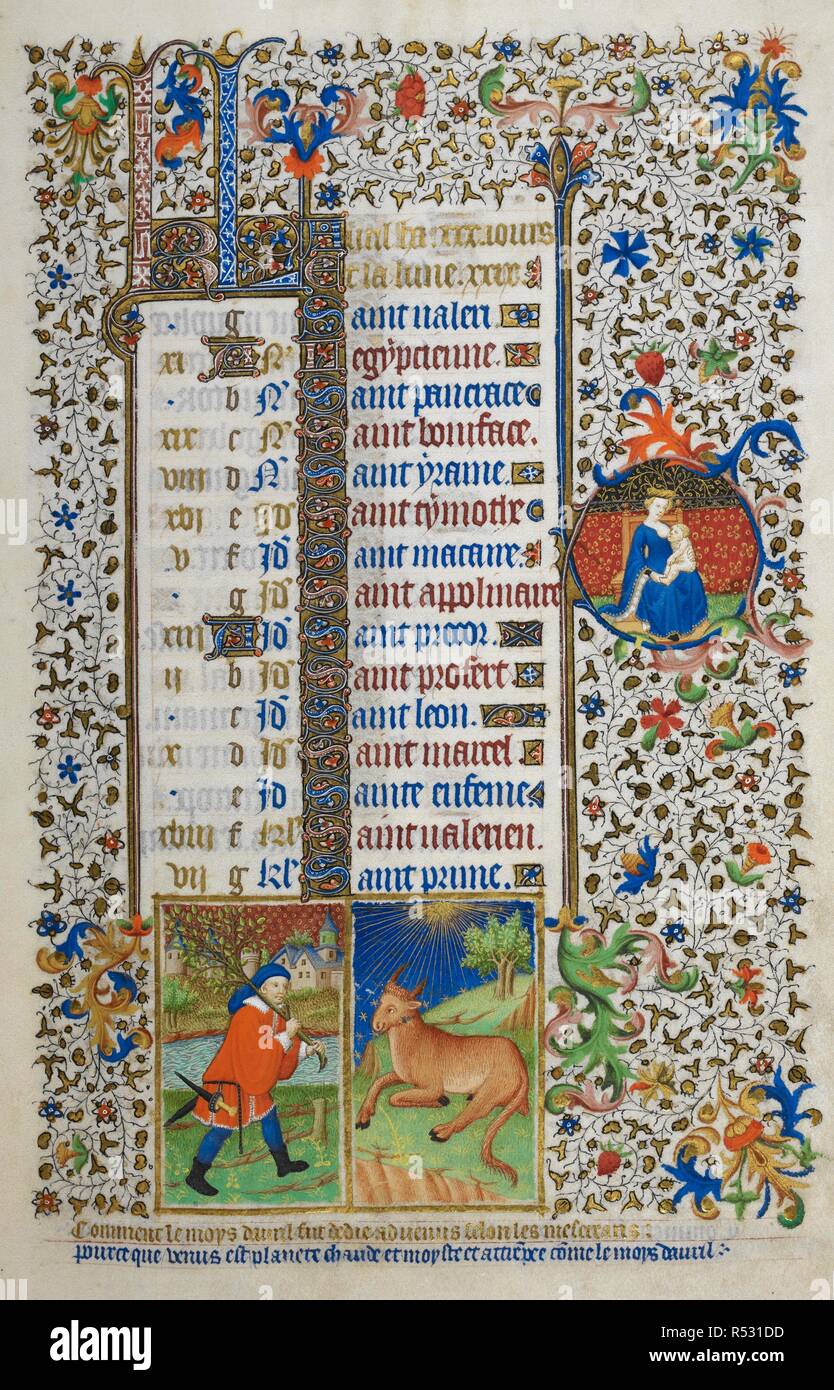 KL Auril ha .xxx. iours
Et la lune .xxix.
· g Saint ualeri.
xi A Nˢ Legypcienne.
· b Nˢ Saint pancrace
xix c Nˢ Saint boniface.
viii d Nˢ Saint yrame.
xvi e Id Saint tymothe
v f Id Saint macaire.
· g Id Saint appolinaire
xiii A Id Saint procor.
ii b Id Saint profert.
· c Id Saint leon.
x d Id Saint marcel.
· e Id Sainte eufeme
xviii f kl Saint ualerien.
vii g kl Saint prime.
Comment le moys dauril fut dedie a venus selon les mescreans
pource que venus est planete chaude et moyste et attrempee come le moys dauril
alamy
Image ID: R531DD
www.alamy.com